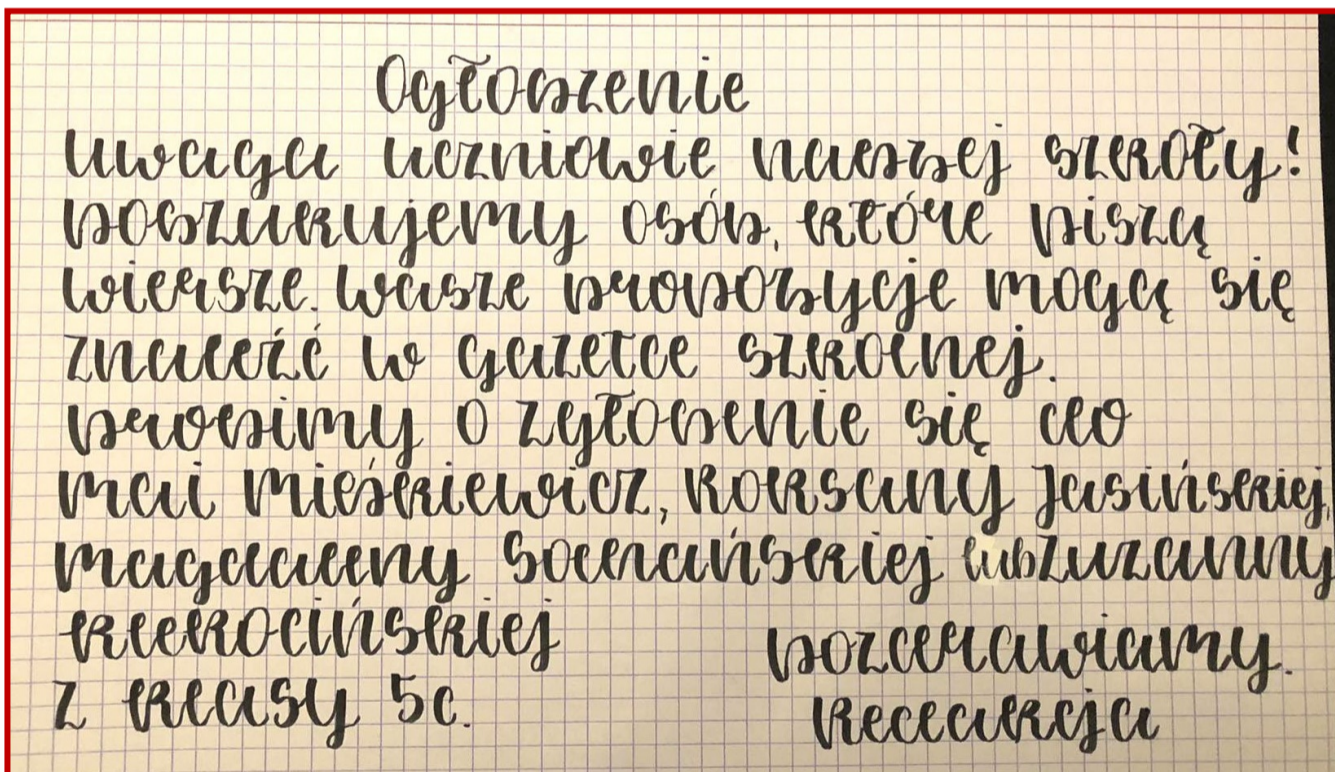 Ogłoszenie
Uwaga uczniowie naszej szkoły!
Poszukujemy osób, które piszą
wiersze. Wasze propozycje mogą się
znaleźć w gazetce szkolnej.
Prosimy o zgłoszenie się do
Mai Mieśkiewicz, Roksany Jasińskiej,
Magdaleny Solrańskiej lub Zuzanny
z klasy 5c.
Pozdrawiamy.
Redakcja